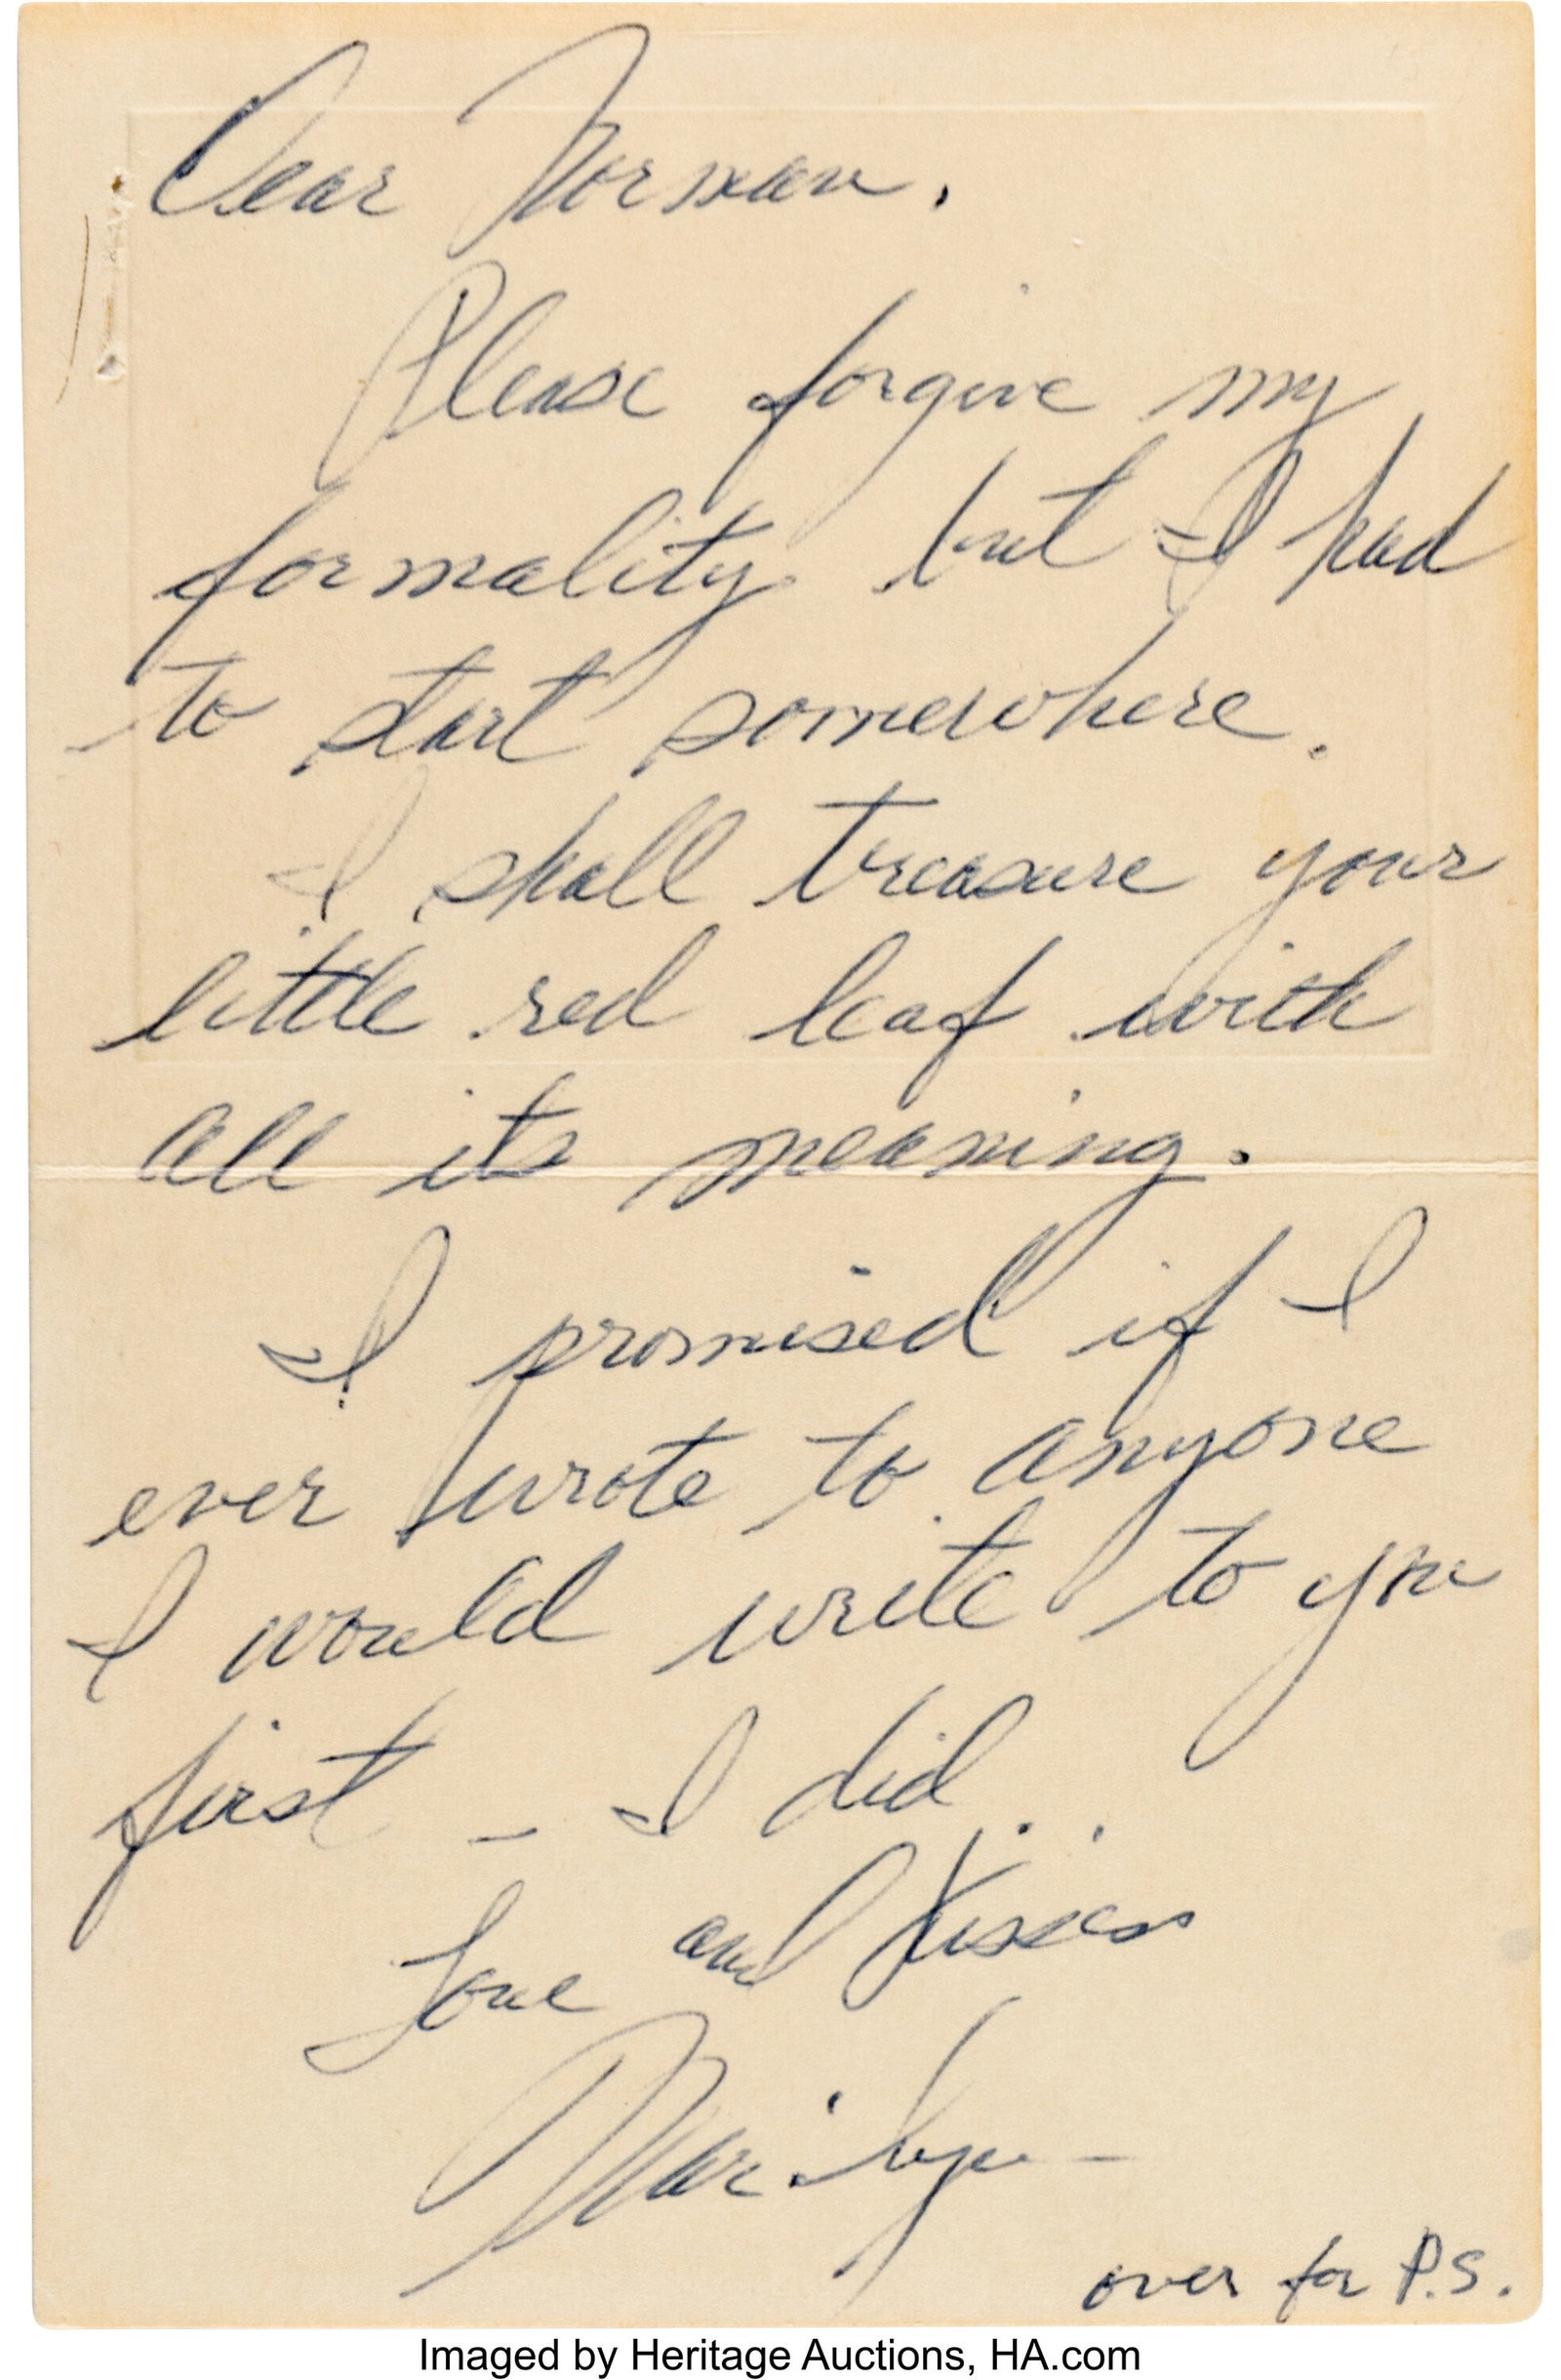 Dear Norman.
Please forgive my
formality but I had
to start somewhere.
I shall treasure your
little red leaf with
all its meaning.
I promised if I
ever wrote to anyone
I would write to you
first – I did . .
Love and Kisses
Marilyn –
over for P.S.
Imaged by Heritage Auctions, HA.com